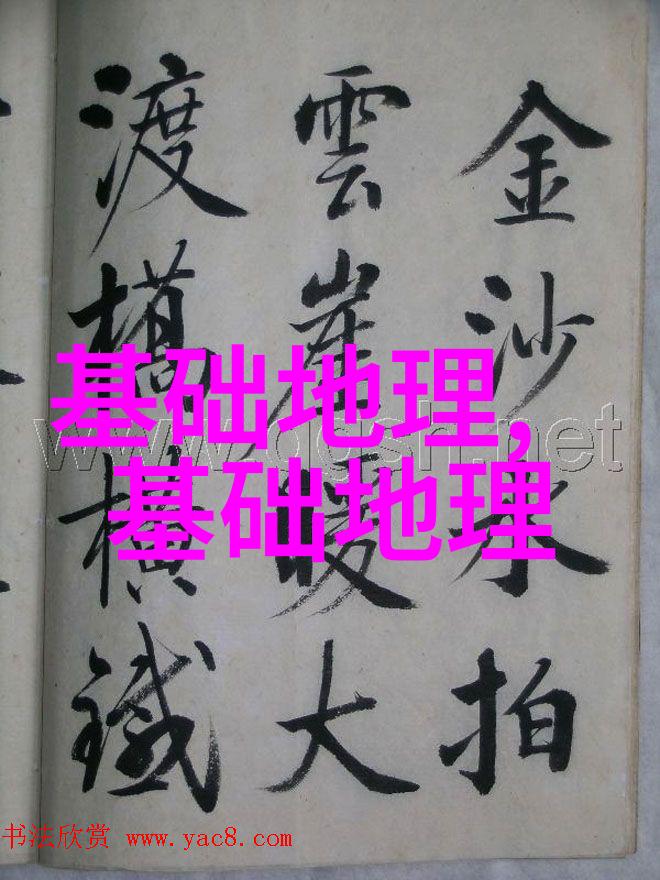 金沙水拍
雲崖暖大
渡橋横鐵
基础地理,
基础地理
书法欣赏 www.yac8.com